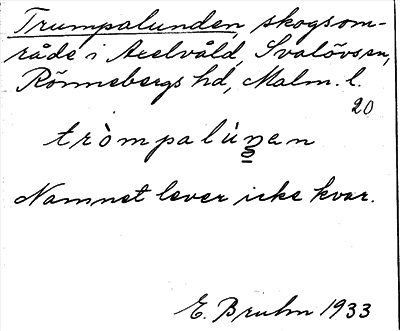 Trumpalunden, skogsom-
råde i Axelvåld, Svalövs sn,
Rönnebergs hd, Malm. l.
20
tròmpalúnan
Namnet lever icke kvar.
E. Bruhn 1933